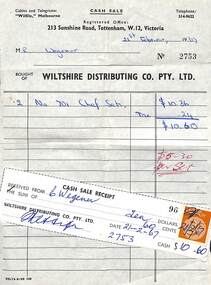 Cables and Telegrams:
"Wiltils," Melbourne
CASH SALE
Telephone:
314-9622
Registered Office:
213 Sunshine Road, Tottenham, W.12, Victoria
21st February, 1967
M
Wagener
No 2753
BOUGHT OF
WILTSHIRE DISTRIBUTING CO. PTY. LTD.
2 No. Chef Set. $10.36
Tax .24
$10.60
$5-30
CASH SALE RECEIPT
96
RECEIVED FROM C Wagener
THE SUM OF Ten
60
DOLLARS
CENTS
WILTSHIRE DISTRIBUTING CO. PTY. LTD.
DATE 21-2-67
2753
CASH $10-60